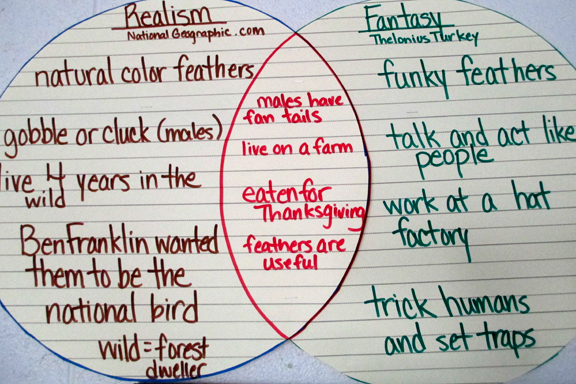 Realism
NationalGeographic.com
natural color feathers
gobble or cluck (males)
live 4 years in the
wild
Ben Franklin wanted
them to be the
national bird
wild = forest
dweller
males have
fan tails
live on a farm
eaten for
Thanksgiving
feathers are
useful
Fantasy
Thelonius Turkey
funky feathers
talk and act like
people
work at a hat
factory
trick humans
and set traps